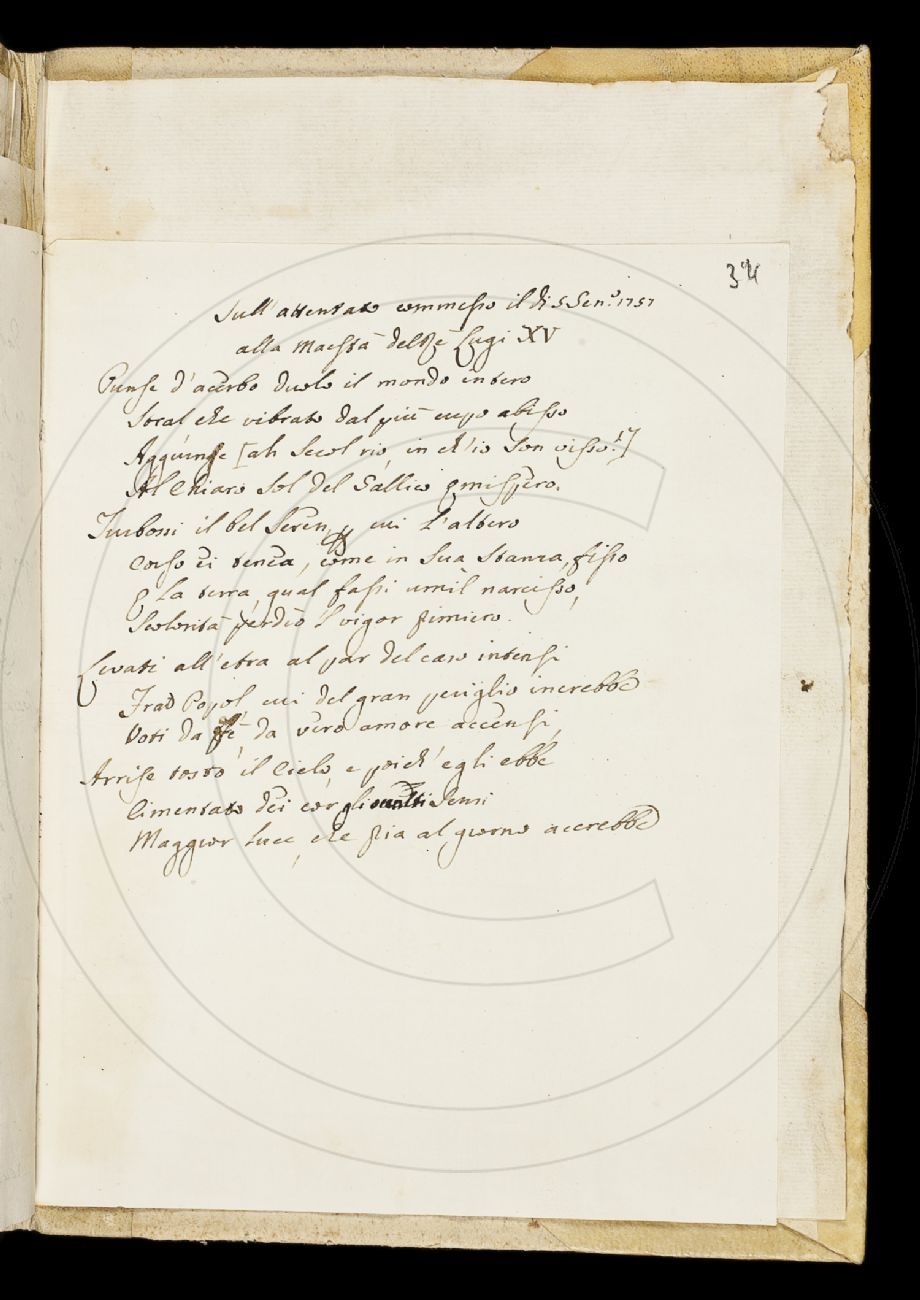 34
Sull'attentato commesso il dì 5 Gen.º 1757
alla Maestà del Rè Luigi XV
Punse d'acerbo duolo il mondo intero
Stral che vibrato dal più cupo abisso
Aggiunse [ah Secol rio, in ch'io son visso!]
Al Chiaro Sol del Gallico Emispero.
Turbossi il bel Seren, cui l'altero
Corso ei tenea, come in Sua Stanza, fisso
E La terra, qual fassi umil narcisso,
Scolorita perdeo 'l vigor primiero.
Levati all'etra al par del caso intensi
Frà 'l Popol, cui del gran periglio increbbe
Voti da fè, da vero amore accensi,
Arrise tosto il Cielo, e poich'egli ebbe
Cimentato dei cor gli occulti Sensi
Maggior luce, che pria al giorno accrebbe